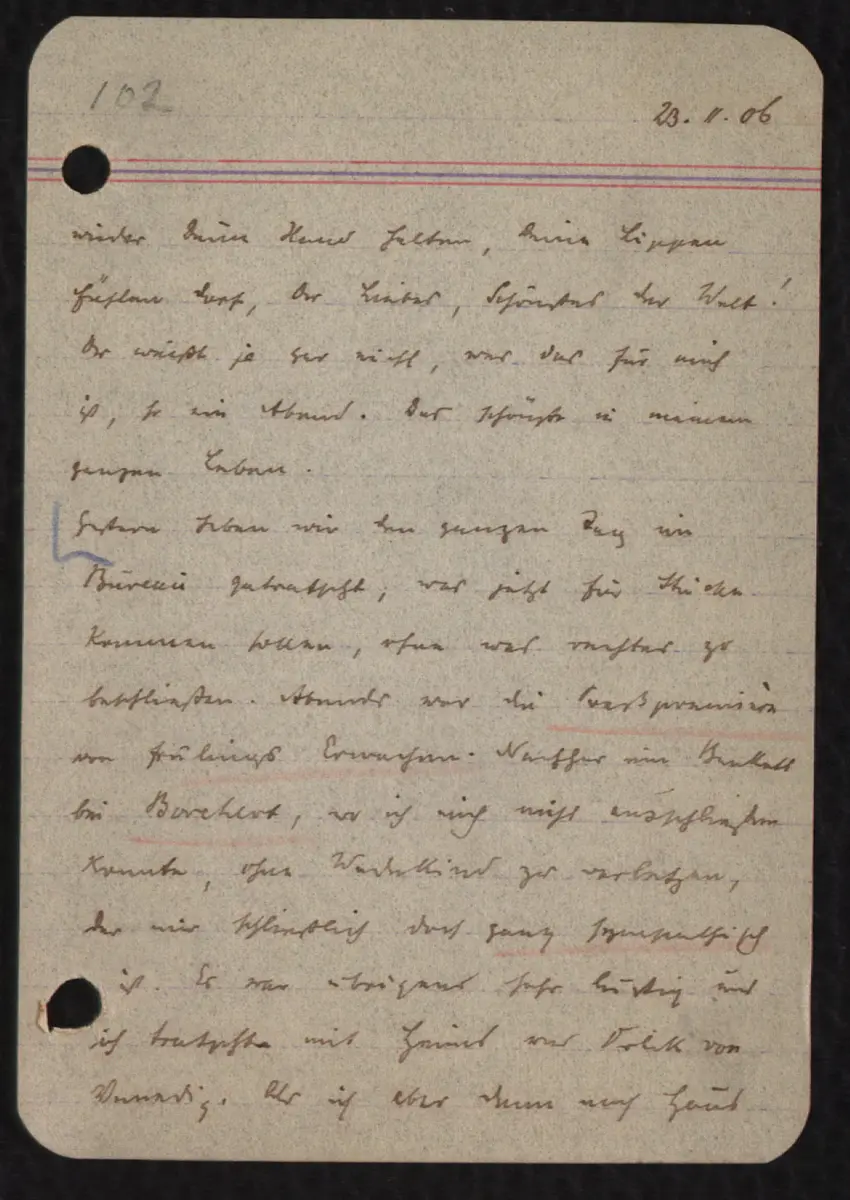 102
23. 11. 06
wieder Deine Hand halten, Deine Lippen
fühlen darf, Du Liebes, Schönstes der Welt!
Du weißt ja gar nicht, was das für mich
ist, so ein Abend. Das schönste in meinem
ganzen Leben.
Gestern haben wir den ganzen Tag im
Bureau getratscht, was jetzt für Stücke
kommen sollen, ohne was rechtes zu
beschließen. Abends war die
von Frülings Erwachen. Nachher ein Bankett
bei Borchert, wo ich mich nicht ausschließen
konnte, ohne Wedekind zu verletzen,
der mir schließlich doch ganz sympathisch
ist. Es war übrigens sehr lustig und
ich tratschte mit und von
Venedig. Als ich aber dann nach Haus